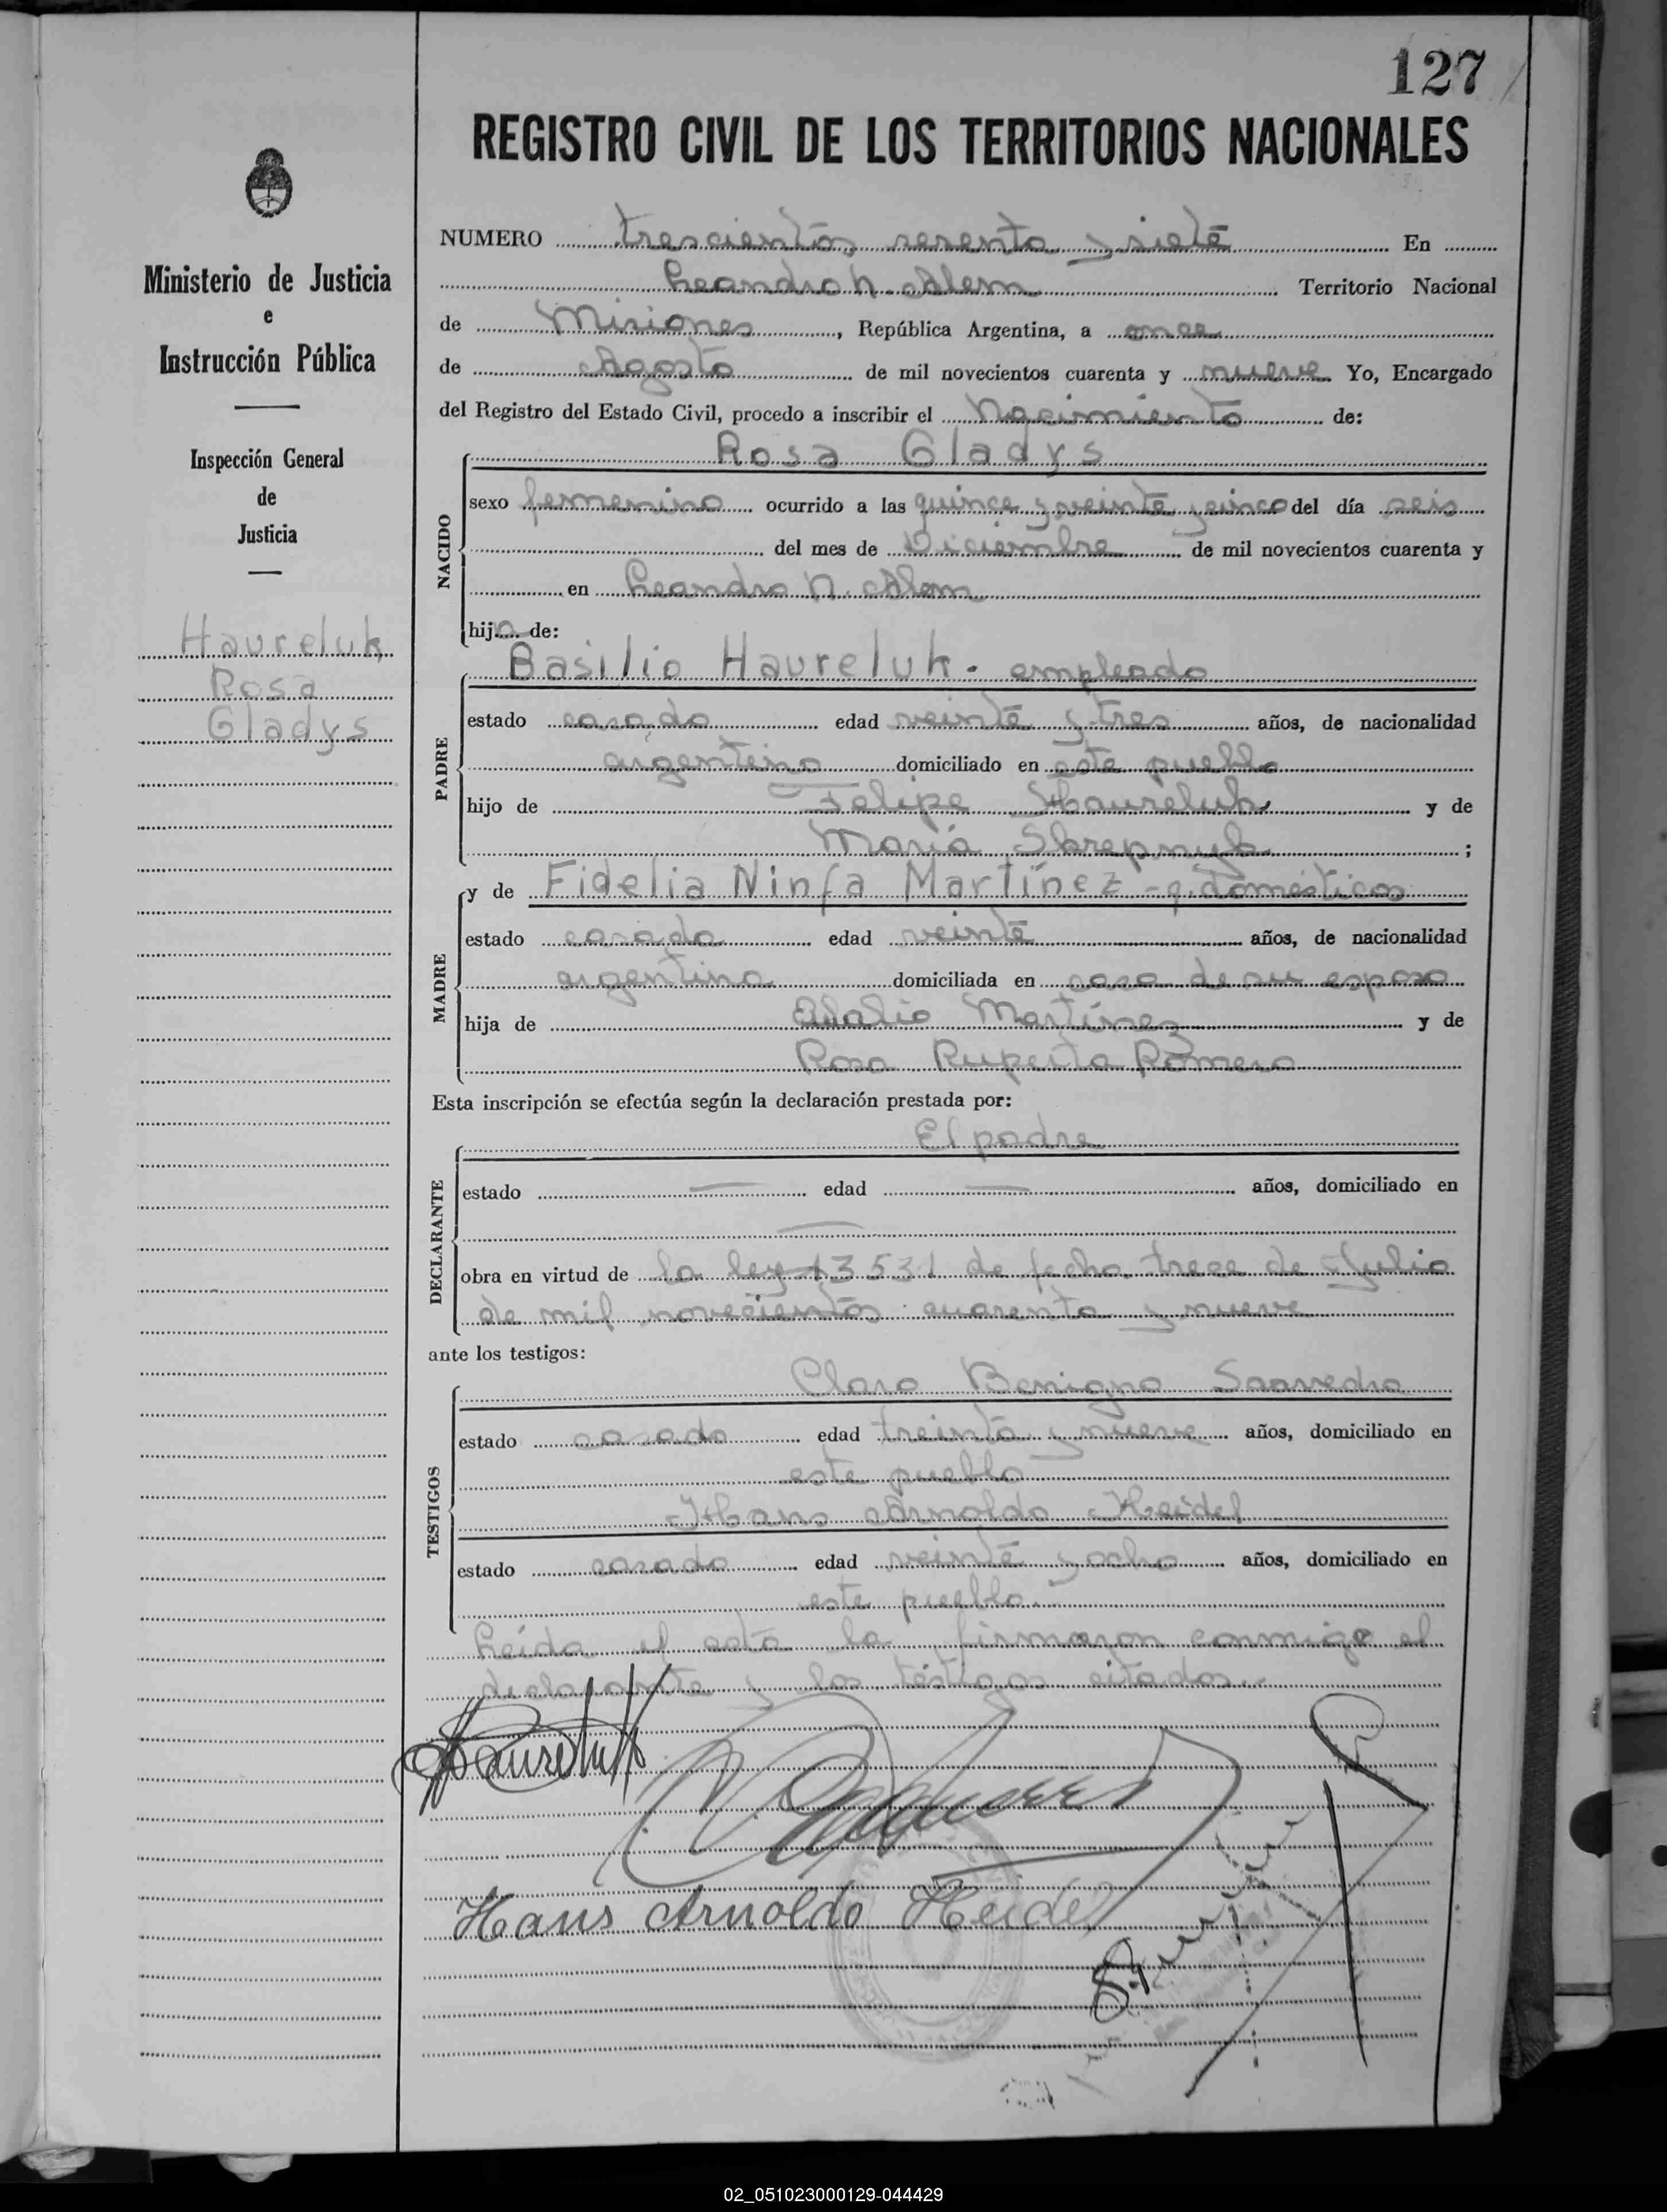 127
REGISTRO CIVIL DE LOS TERRITORIOS NACIONALES
Ministerio de Justicia
e
Instrucción Pública
Inspección General
de
Justicia
Haureluk
Rosa
Gladys
NUMERO trescientos sesenta y siete En
Leandro N. Alem Territorio Nacional
de Misiones, República Argentina, a once
de Agosto de mil novecientos cuarenta y nueve Yo, Encargado
del Registro del Estado Civil, procedo a inscribir el Nacimiento de:
Rosa Gladys
NACIDO
sexo femenino ocurrido a las quince y veinte y cinco del día seis
del mes de Diciembre de mil novecientos cuarenta y
en Leandro N. Alem
hija de:
Basilio Haureluk. empleado
PADRE
estado casado edad veinte y tres años, de nacionalidad
argentino domiciliado en este pueblo
hijo de Felipe Haureluk y de
María Skrepnyk ;
y de Fidelia Ninfa Martínez - q. domésticos
MADRE
estado casada edad veinte años, de nacionalidad
argentina domiciliada en casa de su esposo
hija de Martínez y de
Rosa Ruperta Romero
Esta inscripción se efectúa según la declaración prestada por:
El padre
DECLARANTE
estado — edad — años, domiciliado en
—
obra en virtud de la ley 13531 de fecha trece de Julio
de mil novecientos cuarenta y nueve
ante los testigos:
Claro Benigno Saavedra
TESTIGOS
estado casado edad treinta y nueve años, domiciliado en
este pueblo
Hans Arnoldo Heidel
estado casado edad veinte y ocho años, domiciliado en
este pueblo.
Leida el acta la firmaron conmigo el
declarante y los testigos citados..
Haureluk
Hans Arnoldo Heidel
02_051023000129-044429